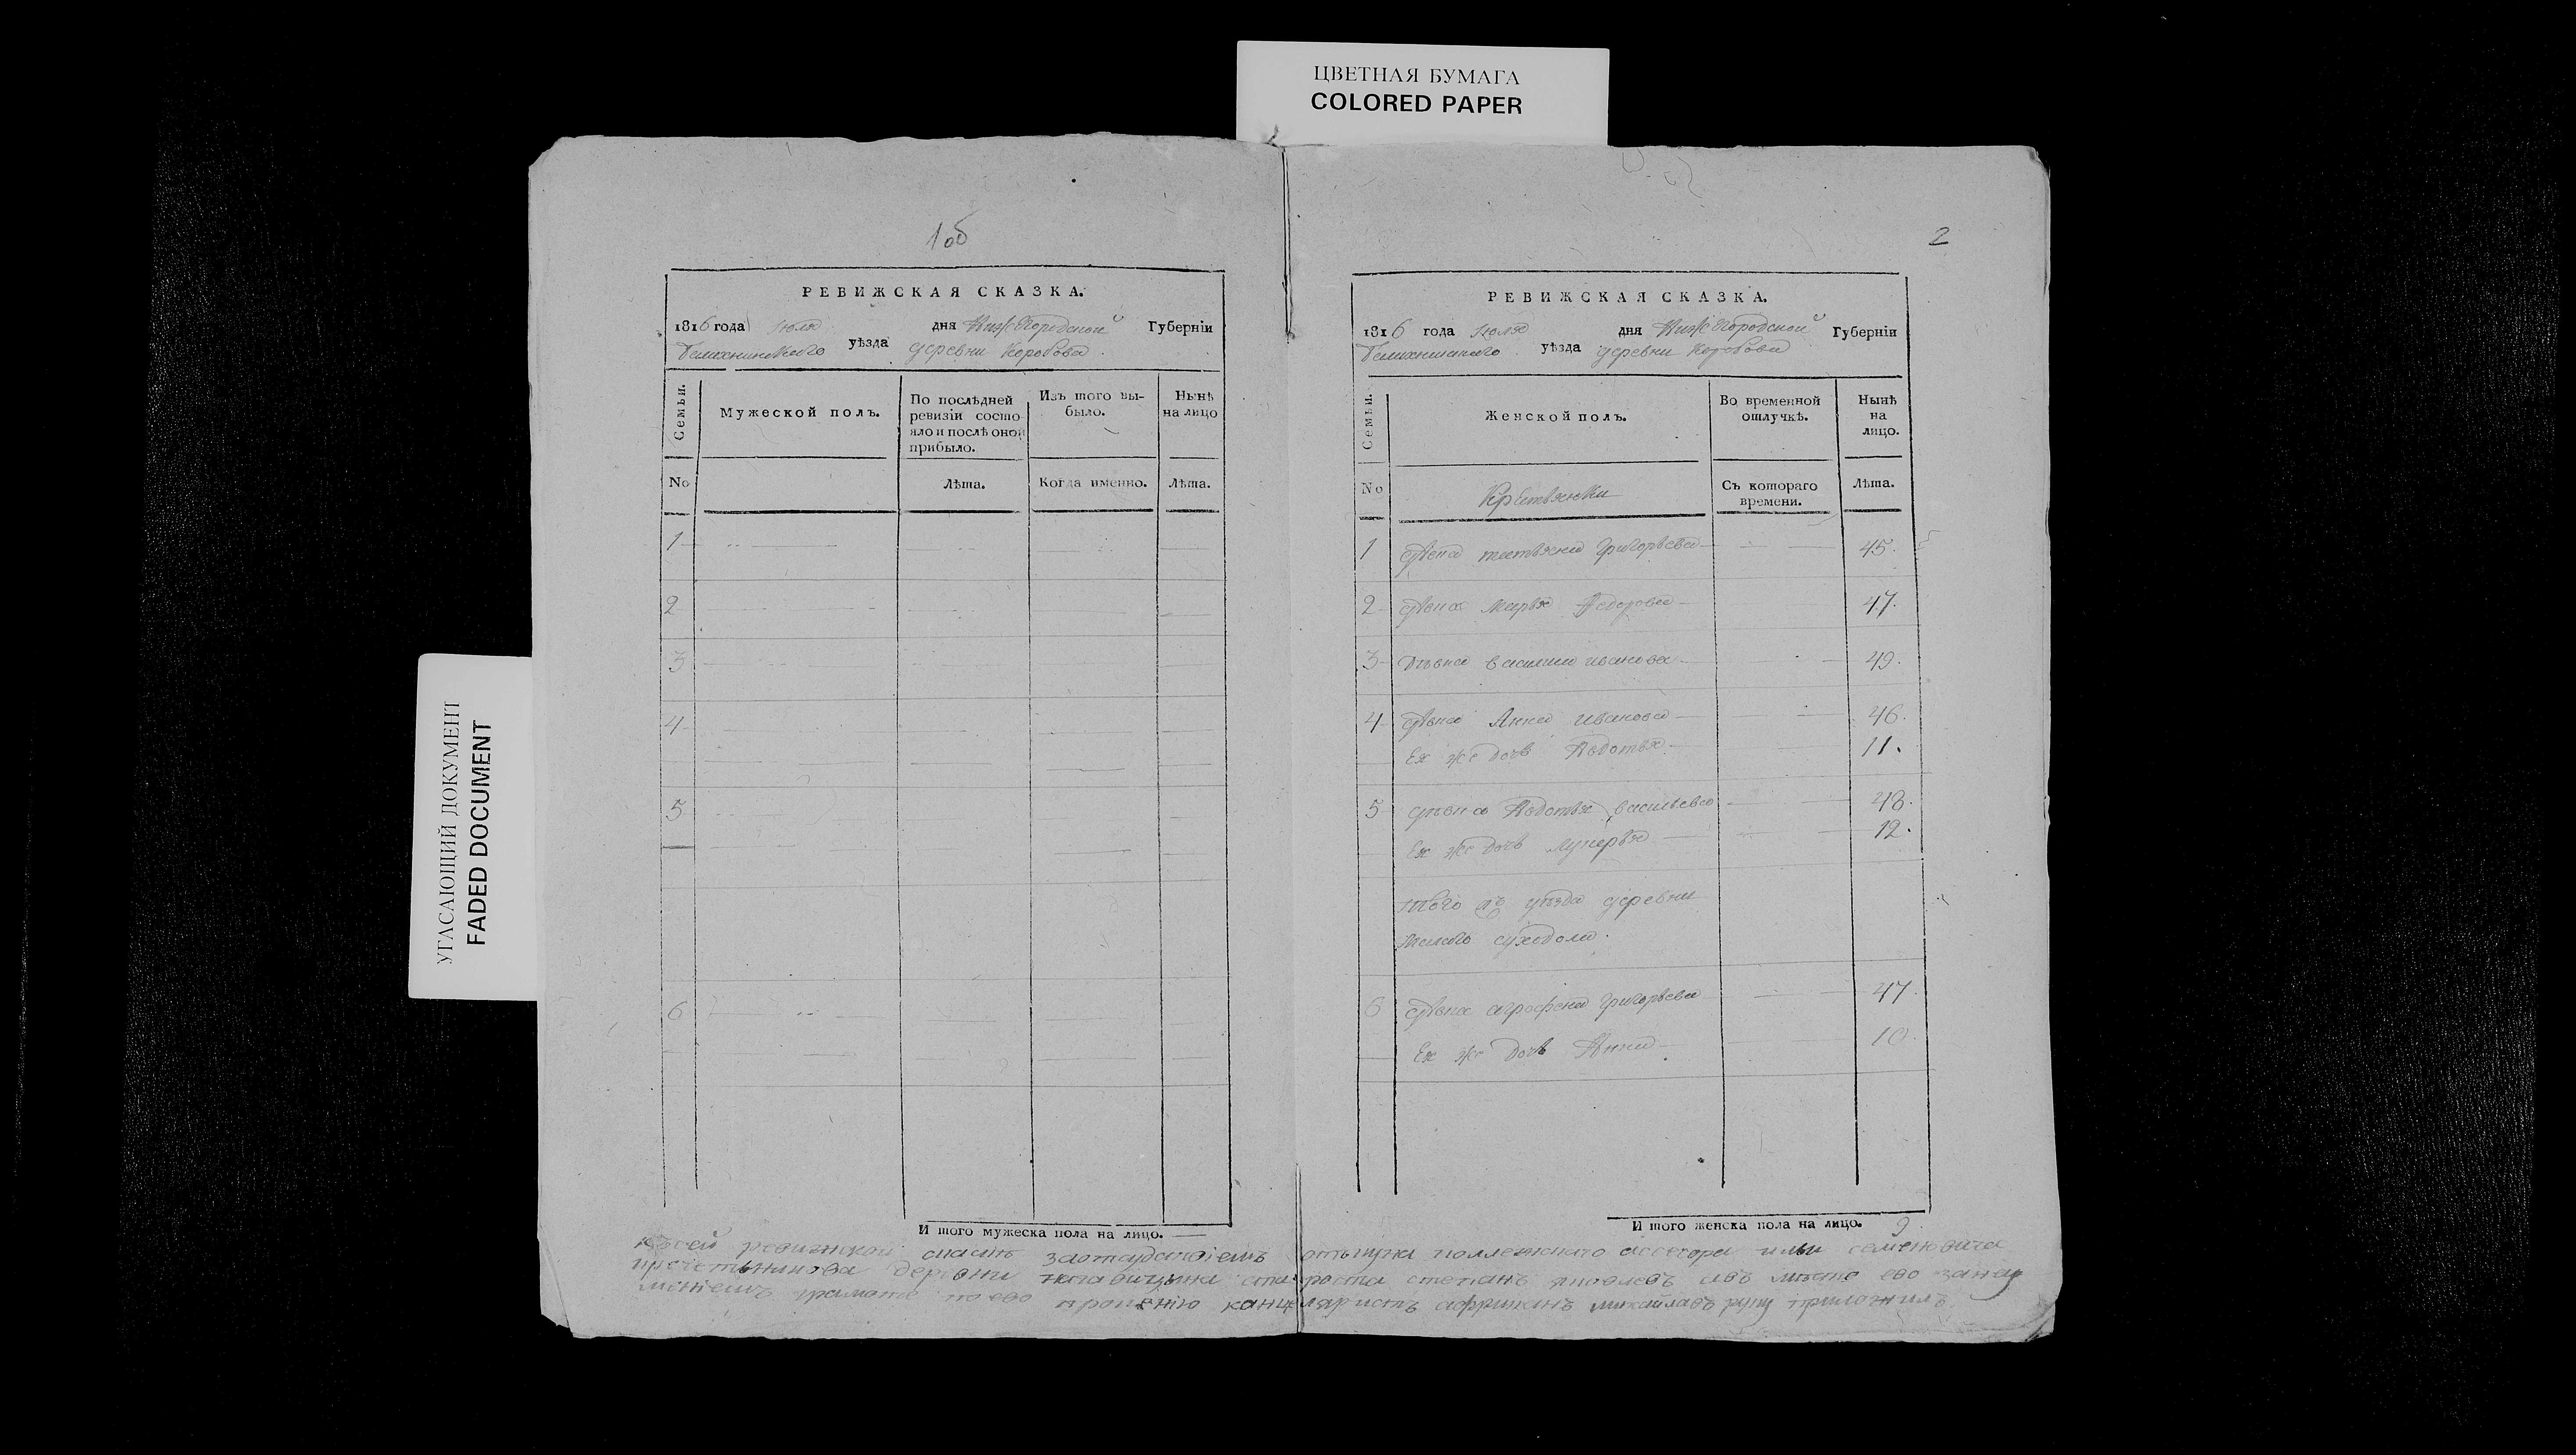 ЦВЕТНАЯ БУМАГА
COLORED PAPER
УГАСАЮЩИЙ ДОКУМЕНТ
FADED DOCUMENT
1об
РЕВИЖСКАЯ СКАЗКА.
1816 года июля дня Нижегородской Губернїи
уѣзда деревни Коробова
Семьи.
Мужеской полъ.
По послѣдней ревизїи состояло и послѣ оной прибыло.
Изъ того выбыло.
Нынѣ на лицо
No
Лѣта.
Когда именно.
Лѣта.
1
2
3
4
5
6
И того мужеска пола на лицо. —
2
РЕВИЖСКАЯ СКАЗКА.
1816 года июля дня Нижегородской Губернїи
уѣзда деревни Коробова
Семьи.
Женской полъ.
Во временной отлучкѣ.
Нынѣ на лицо.
No
Крестьянки
Съ котораго времени.
Лѣта.
1 девка татьяна Григорьева 45.
2 девка марья Федорова 47.
3 дѣвка василиса иванова 49.
4 девка Анна иванова 46.
Ея же дочь Авдотья 11.
5 дѣвка Авдотья васильева 48.
Ея же дочь лукерья 12.
того жъ уѣзда деревни
малого суходола.
6 девка агрофена Григорьева 47.
Ея же дочь Анна 10.
И того женска пола на лицо. 9.
ксей ревижской скаски отпуска коллежскаго асесора ильи семеновича
деревни староста степанъ яковлевъ авъ место ево
грамоте по ево прошению канцеляристъ африканъ михайлавъ руку приложилъ